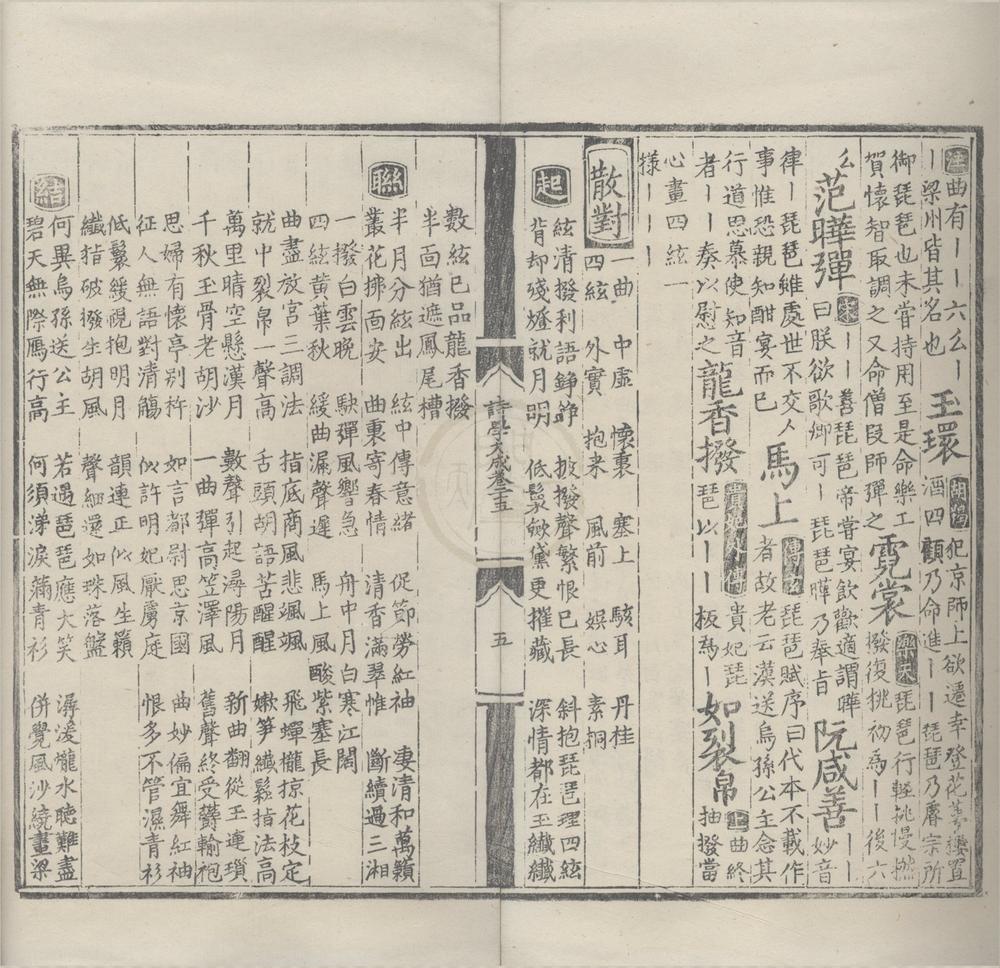 注曲有丨丨六幺丨玉環胡羯犯京師上欲遷幸登花萼樓置
丨梁州皆其名也酒四顧乃命進丨丨琵琶乃睿宗所
御琵琶也未嘗持用至是命樂工霓裳樂天琵琶行輕挑慢撚
賀懷智取調之又命僧段師彈之撥復挑初為丨丨後六
幺范曄彈宋丨丨善琵琶帝嘗宴飲歡適謂曄阮咸善丨丨
曰朕欲歌卿可丨琵琶曄乃奉旨妙音
律丨琵琶雖處世不交人馬上傅玄琵琶賦序曰代本不載作
事惟恐親知酣宴而已者故老云漢送烏孫公主念其
行道思慕使知音龍香撥貴妃傳貴妃琵如裂帛上曲終
者丨丨奏以慰之琶以丨丨板為丨抽撥當
心畫四絃一
樣丨丨丨
散對 一曲 中虛 懷裏 塞上 駭耳 丹桂
四絃 外實 抱來 風前 娛心 素桐
起 絃清撥利語錚錚 披撥聲繁恨已長 斜抱琵琶理四絃
背却殘燈就月明 低鬟斂黛更摧藏 深情都在玉纖纖
詩學大成卷二十五 五
數絃已品龍香撥
半面猶遮鳳尾槽
聯 半月分絃出 絃中傳意緒 促節勞紅袖 凄清和萬籟
叢花拂面安 曲裏寄春情 清香滿翠惟 斷續過三湘
一撥白雲晚 駃彈風響急 舟中月白寒江闊
四絃黃葉秋 緩曲漏聲遲 馬上風酸紫塞長
曲盡放宮三調法 指底商風悲颯颯 飛蟬櫳掠花枝定
就中裂帛一聲高 舌頭胡語苦醒醒 嫰笋纖鬆指法高
萬里晴空懸漢月 數聲引起潯陽月 新曲翻從玉連瑣
千秋玉骨老胡沙 一曲彈高笠澤風 舊聲終受鬱輪袍
思婦有懷亭別杵 如言都尉思京國 曲妙偏宜舞紅袖
征人無語對清觴 似訴明妃厭虜庭 恨多不管濕青衫
低鬟緩視抱明月 韻連正似風生籟
纖指破撥生胡風 聲細還如珠落盤
結 何異烏孫送公主 若遇琵琶應大笑 潺湲隴水聽難盡
碧天無際鴈行高 何須涕淚滿青衫 併覺風沙繞畫梁